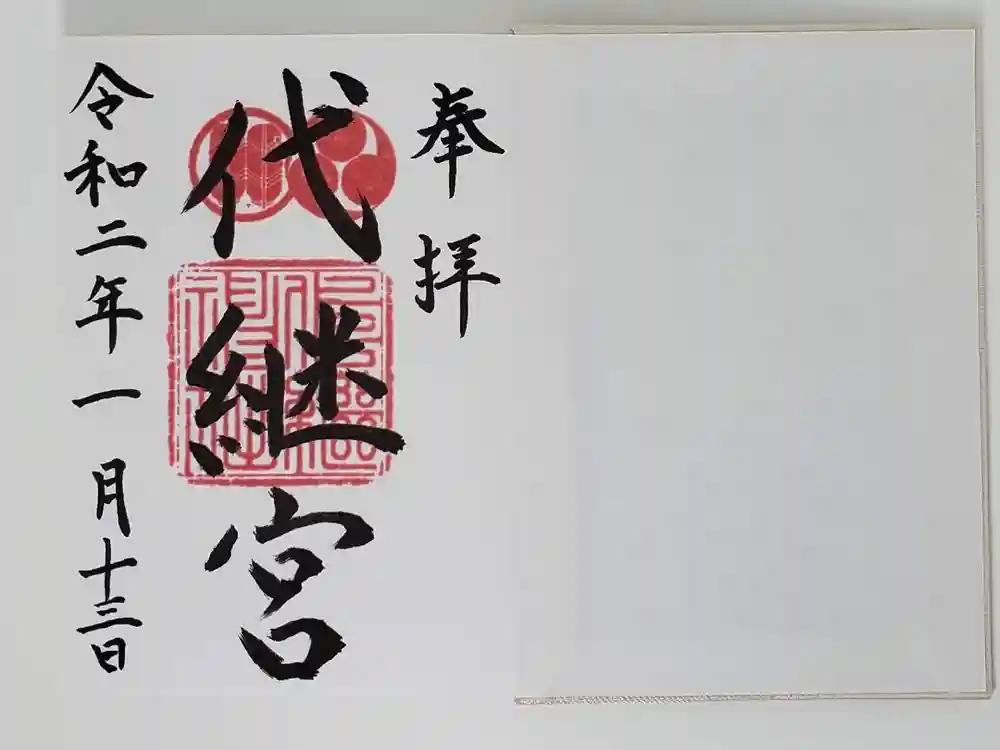 奉拝
代継宮
令和二年一月十三日